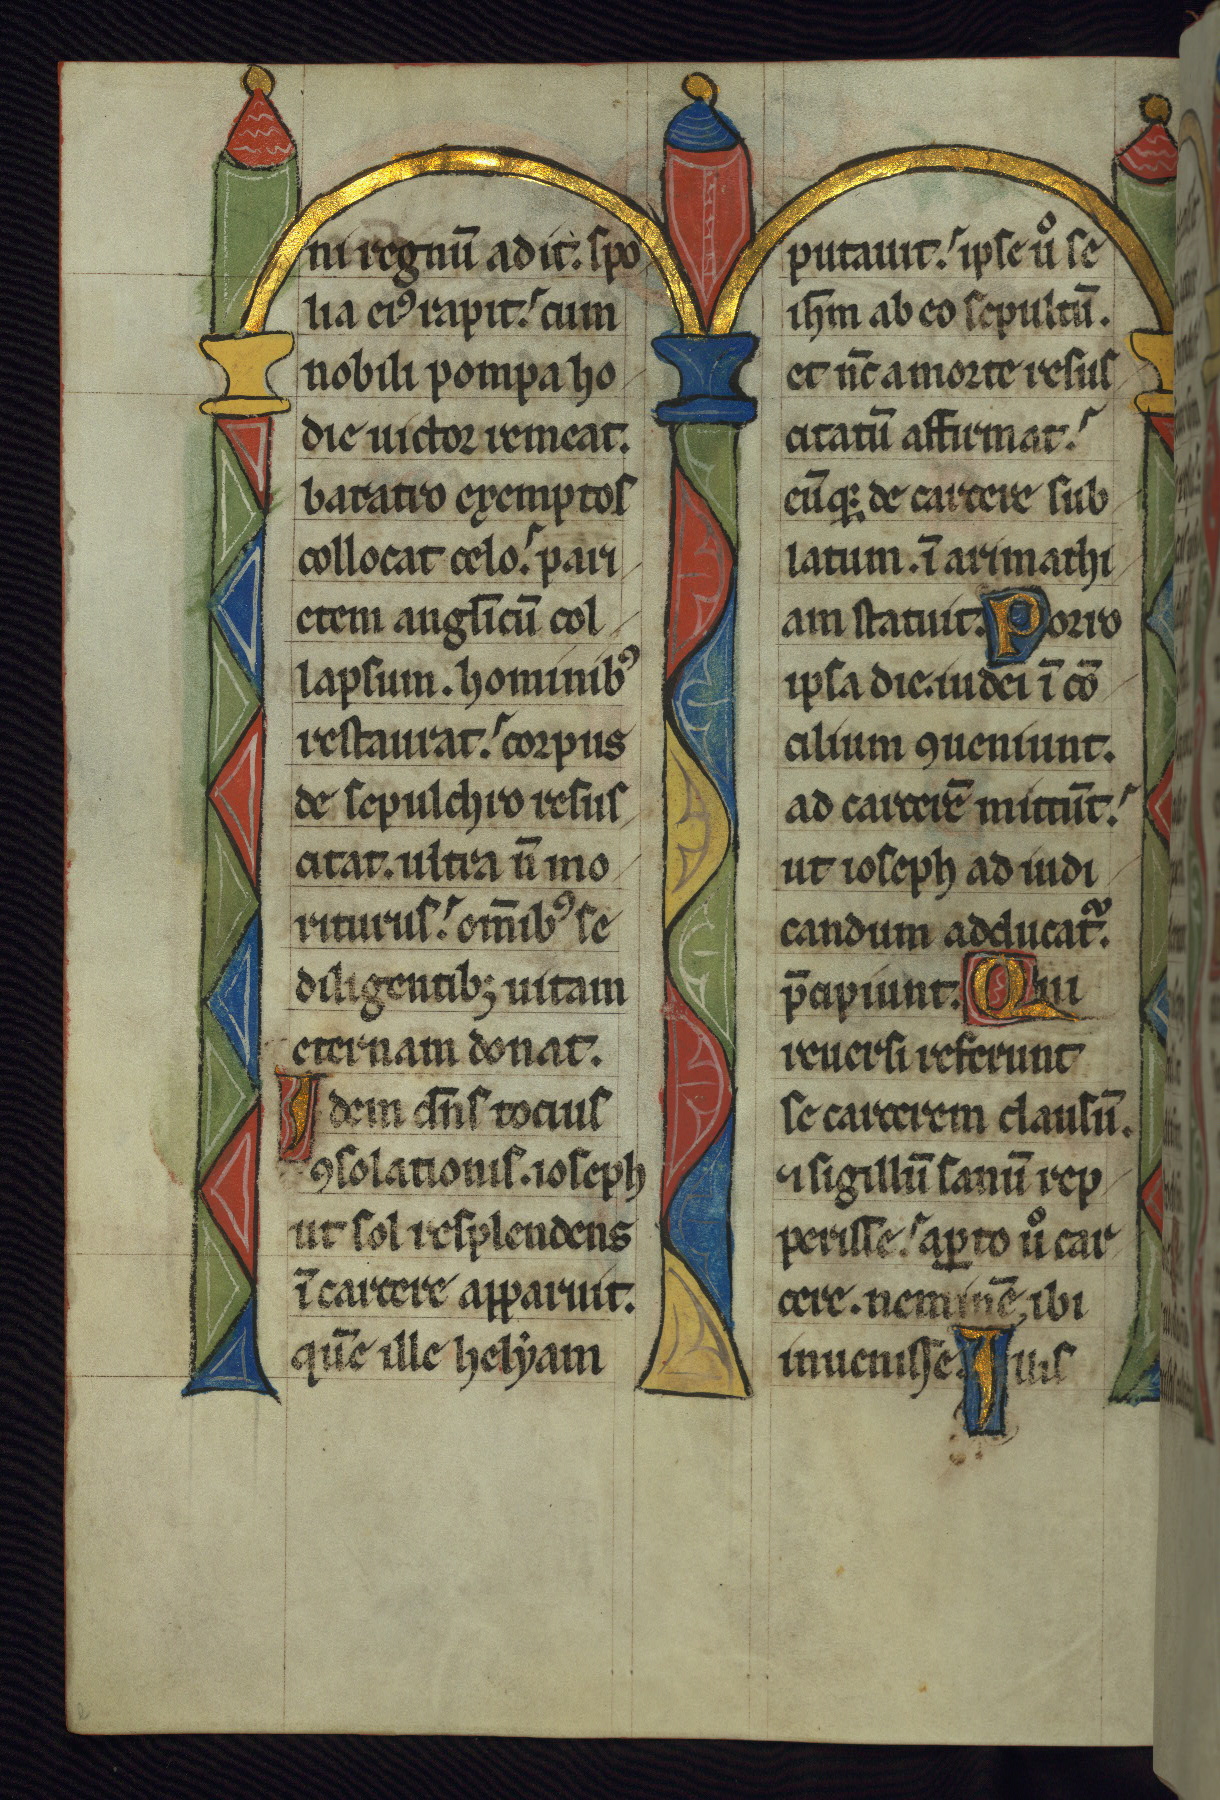 ni regnū adit. spo
lia ei⁹ rapit. cum
nobili pompa ho
die uictor remeat.
baratro exemptos
collocat celo. pari
etem anglicū col
lapsum. hominib⁹
restaurat. corpus
de sepulchro resus
citat. ultra n̄ mo
riturus. om̄ib⁹ se
diligentibꝫ uitam
eternam donat.
Idem dn̄s tocius
ꝯsolationis. ioseph
ut sol resplendens
ī carcere apparuit.
quē ille helẏam
putauit. ipse u͛o se
ih̄m ab eo sepultū.
et nc̄ a morte resus
citatū affirmat.
eūqꝫ de carcere sub
latum. ī arimathi
am statuit. Porro
ipsa die. iudei ī cō
cilium ꝯueniunt.
ad carcerē mittūt.
ut ioseph ad iudi
candum adducat᷑.
p̄cipiunt. Qui
reuersi referunt
se carcerem clausū.
⁊ sigillū sanū rep
perisse. aꝑto u͛o car
cere. neminē ibi
inuenisse. Iuis